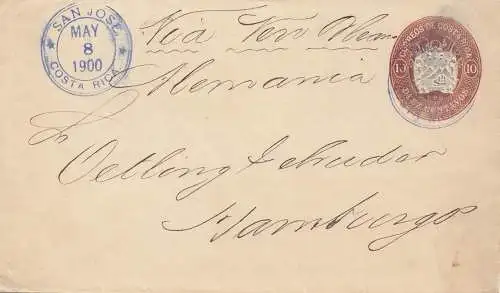 SAN JOSE
MAY
8
1900
COSTA RICA
Via New
CORREOS DE COSTA RICA
10 10
DIEZ CENTAVOS
Alemania
Oelling
Hamburgo